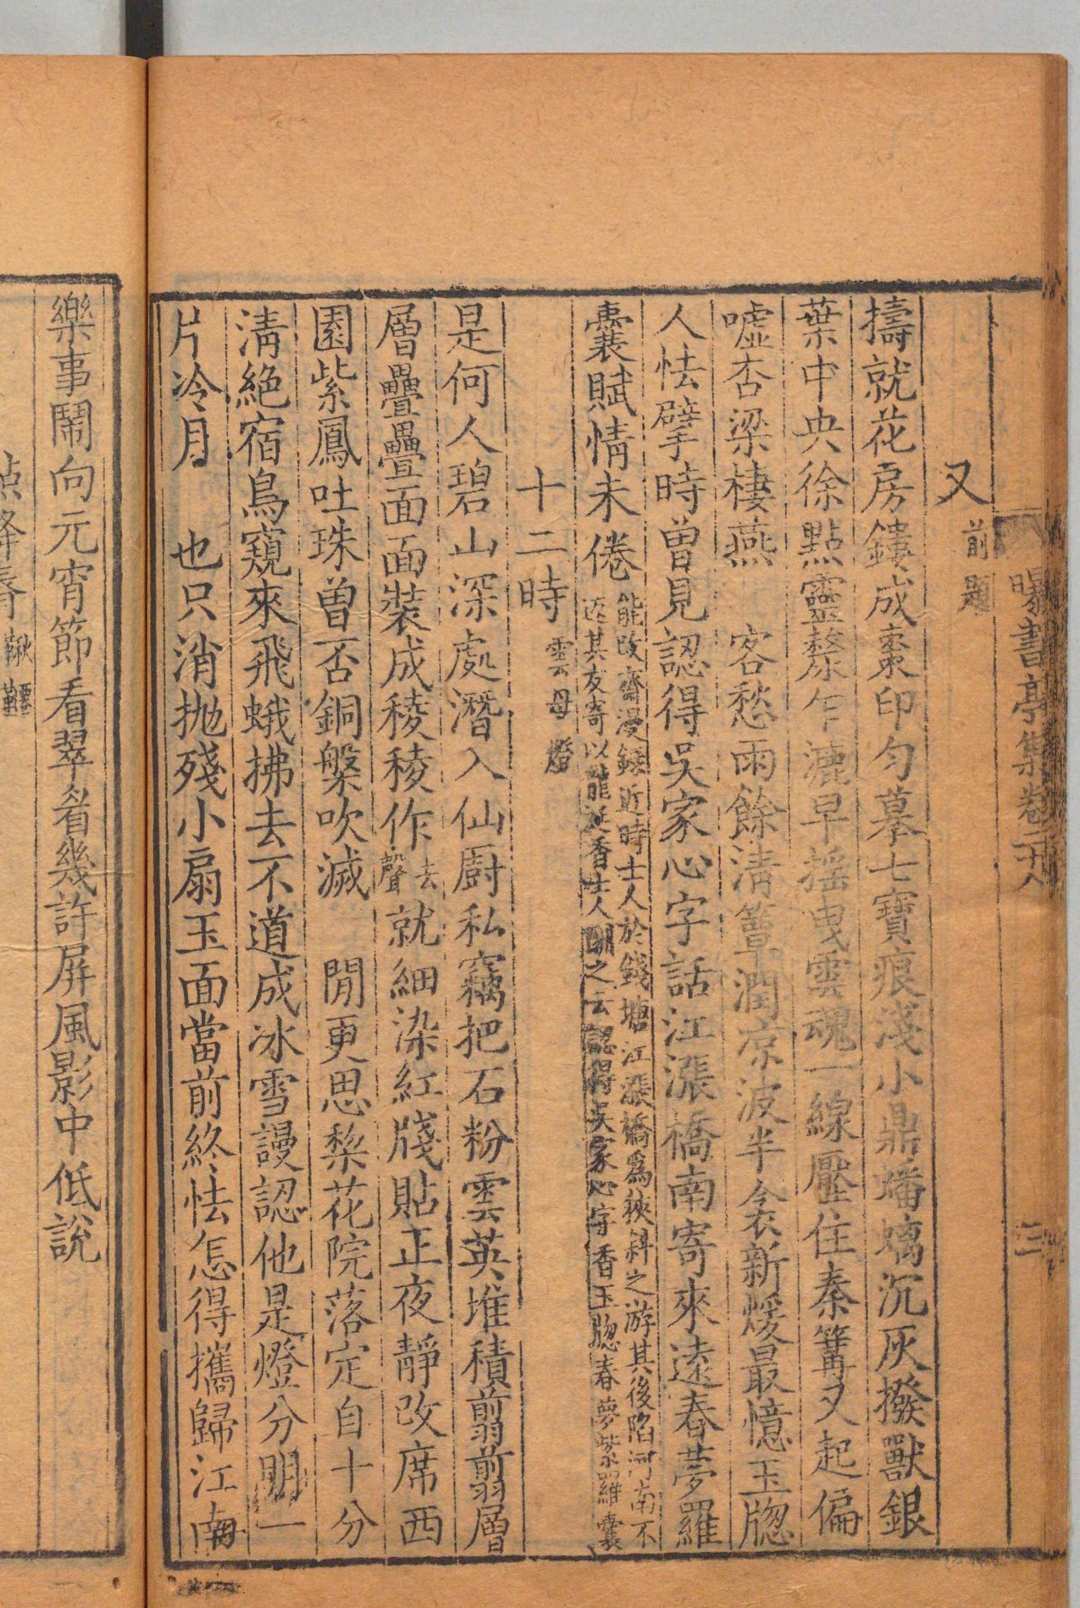 曝書亭集卷二十八
三
又前題
擣就花房鏤成棗印勻摹七寶痕淺小鼎蟠螭沉灰撥獸銀
葉中央徐點靈犛乍漉早搖曳雲魂一線壓住秦篝又起偏
噓杏梁棲燕　客愁雨餘清簟潤凉波半衾新煖最憶玉牕
人怯擘時曾見認得吳家心字話江漲橋南寄來遠春夢羅
囊賦情未倦能改齋漫録近時士人於錢塘江漲橋爲狹斜之游其後陷河南不
返其友寄以龍涎香士人酬之云認得吳家心字香玉牕春夢紫羅囊
十二時雲母燈
是何人碧山深處潛入仙廚私竊把石粉雲英堆積翦翦層
層疊疊面面裝成稜稜作去聲就細染紅牋貼正夜靜改席西
園紫鳳吐珠曾否銅槃吹滅　閒更思棃花院落定自十分
清絶宿鳥窺來飛蛾拂去不道成冰雪謾認他是燈分明一
片冷月　也只消拋殘小扇玉面當前終怯怎得攜歸江南
樂事鬧向元宵節看翠眉幾許屏風影中低說
點絳脣鞦韆